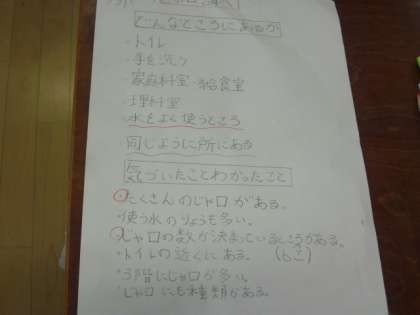 どんなところにあるか
・トイレ
・手を洗う
・家庭科室・給食室
・理科室
・水をよく使うところ
・同じように所にある
気づいたことわかったこと
・たくさんのじゃ口がある。
・使う水のりょうも多い。
・じゃ口の数が決まっているところがある。
・トイレの近くにある。
・3階にじゃ口が多い。
・じゃ口にも種類がある。